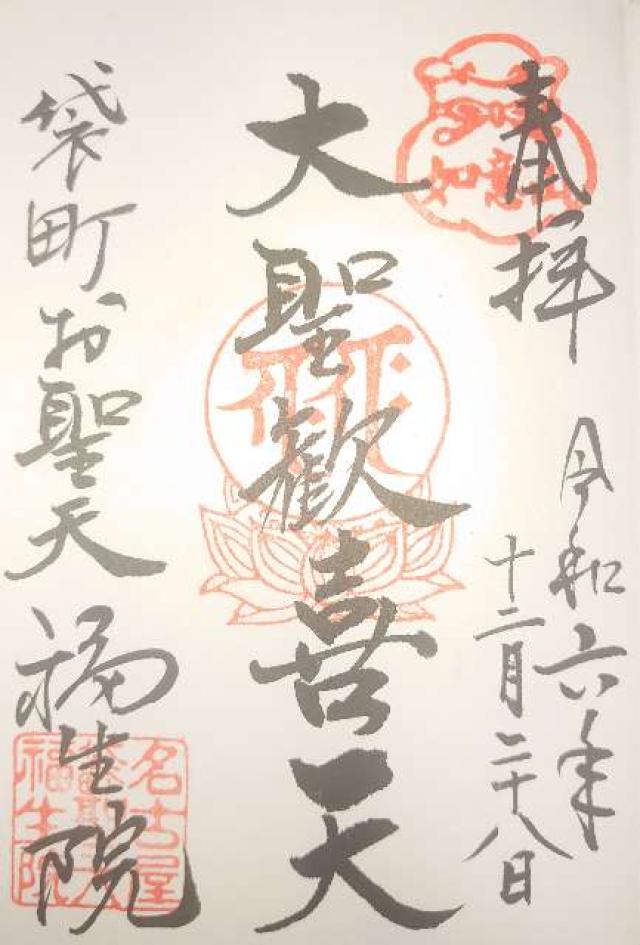 奉拝
令和六年
十二月二十八日
大聖歓喜天
袋町お聖天
福生院
如意山
名古屋
福生院